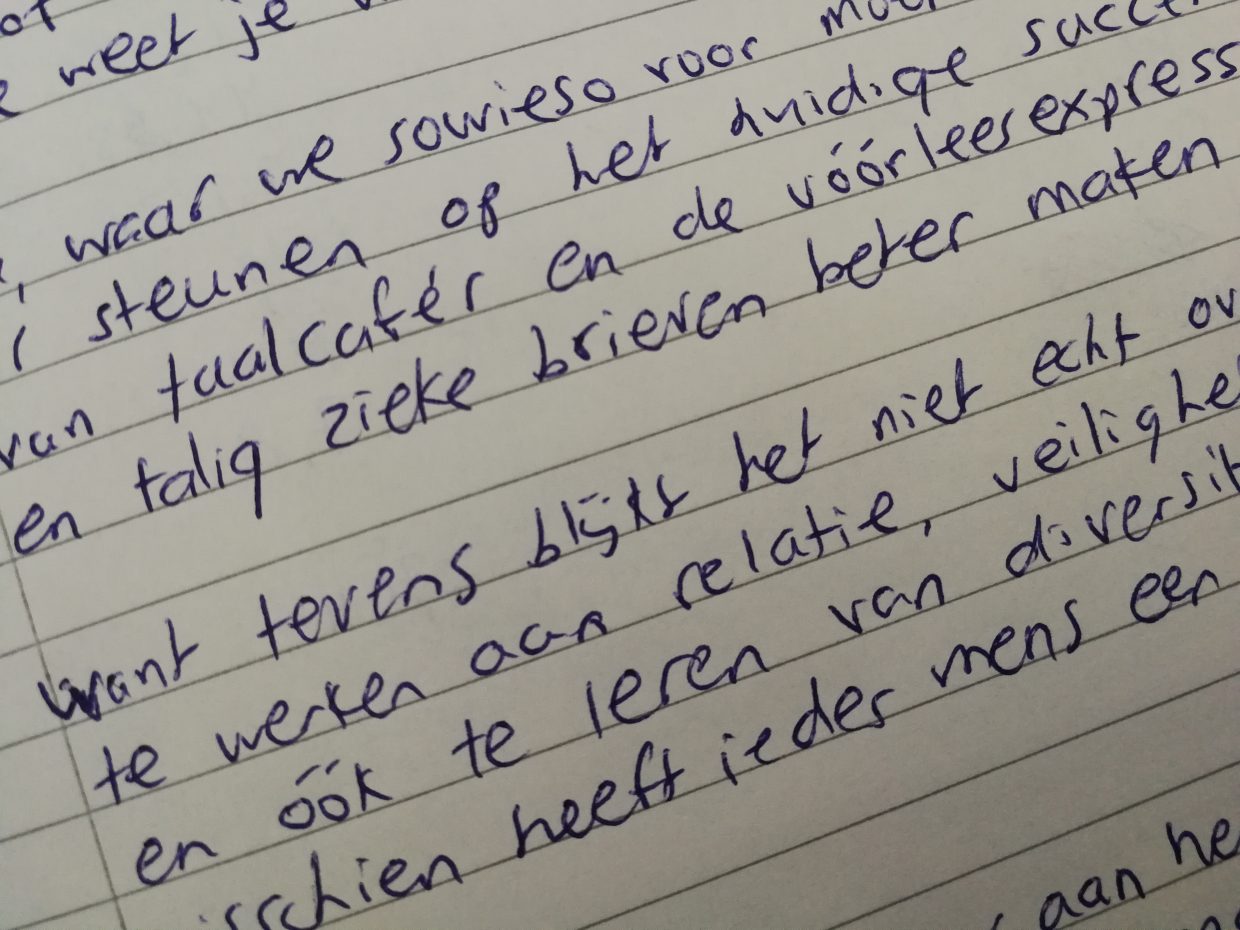 weet je
waar we sowieso voor
steunen op het huidige
van taalcafés en de vóórleesexpress
en talig zieke brieven beter maken
want tevens blijkt het niet echt
te werken aan relatie,
en óók te leren van
heeft ieder mens een
aan